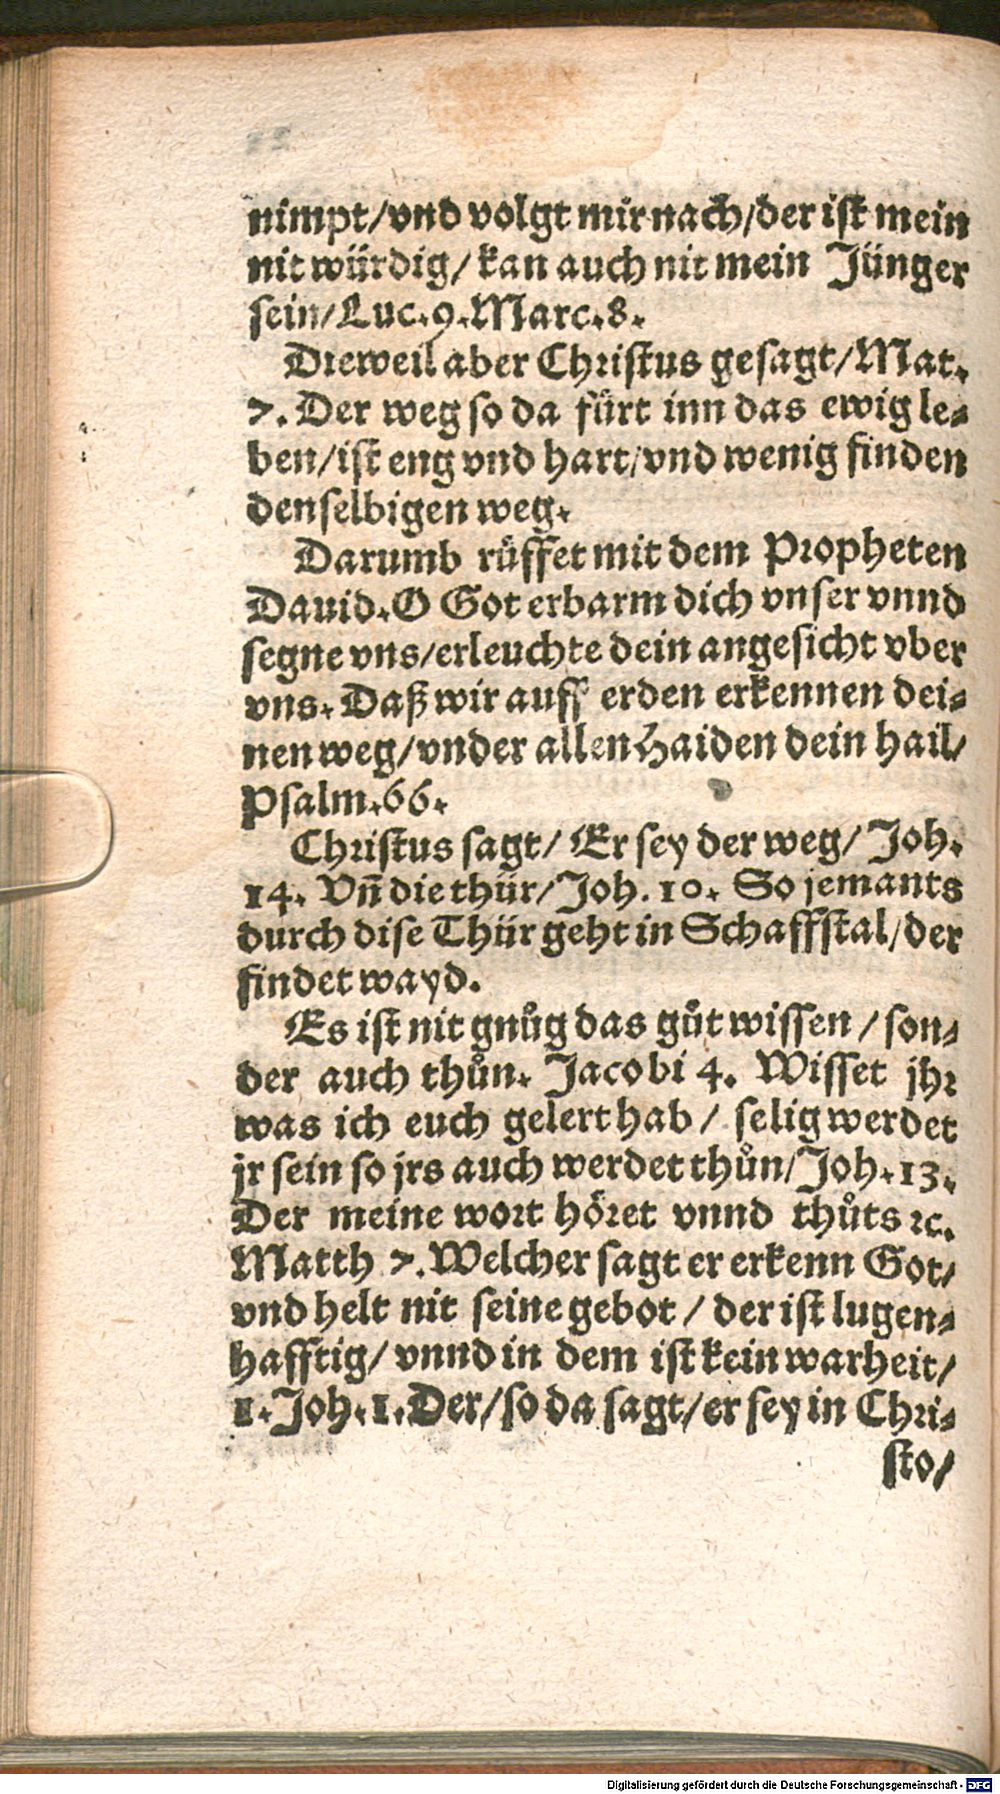 nimpt/vnd volgt mir nach/der ist mein
nit würdig/ kan auch nit mein Jünger
sein/Luc.9.Marc.8.
Dieweil aber Christus gesagt/Mat.
7. Der weg so da fürt inn das ewig le⸗
ben/ist eng vnd hart/vnd wenig finden
denselbigen weg.
Darumb rüffet mit dem Propheten
Dauid. O Got erbarm dich vnser vnnd
segne vns/erleuchte dein angesicht vber
vns. Daß wir auff erden erkennen dei⸗
nen weg/vnder allen Haiden dein hail/
Psalm.66.
Christus sagt/ Er sey der weg/ Joh.
14. Vñ die thür/Joh. 10. So jemants
durch dise Thür geht in Schaffstal/der
findet wayd.
Es ist nit gnůg das gůt wissen / son⸗
der auch thůn. Jacobi 4. Wisset jhr
was ich euch gelert hab / selig werdet
jr sein so jrs auch werdet thůn/Joh.13.
Der meine wort höret vnnd thůts ꝛc.
Matth 7. Welcher sagt er erkenn Got/
vnd helt nit seine gebot / der ist lugen⸗
hafftig/ vnnd in dem ist kein warheit/
1.Joh.1. Der/so da sagt/er sey in Chri⸗
sto/
Digitalisierung gefördert durch die Deutsche Forschungsgemeinschaft - DFG